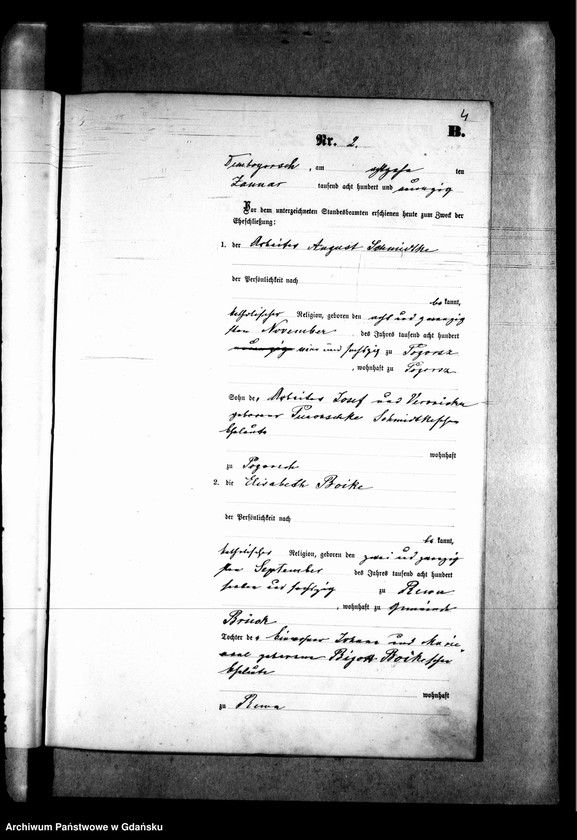 4
B.
Nr. 2.
am achtzehn ten
Januar tausend acht hundert und neunzig
Vor dem unterzeichneten Standesbeamten erschienen heute zum Zweck der
Eheschließung:
1. der Arbeiter August Schmidtke
der Persönlichkeit nach
be kannt,
katholischer Religion, geboren den acht und zwanzig
sten November des Jahres tausend acht hundert
und sechszig zu Pogorsz
, wohnhaft zu Pogorsz
Sohn der Arbeiter Josef und Veronika
geborener Schmidtkeschen
Eheleute
wohnhaft
zu Pogorsch
2. die Elisabeth Boike
der Persönlichkeit nach
be kannt,
katholischer Religion, geboren den zwei und zwanzig
sten September des Jahres tausend acht hundert
sieben und sechszig zu Rewa
, wohnhaft zu Gemeinde
Brück
Tochter der Einwohner Johann und Marie
geborene Bigott Boikeschen
Eheleute
wohnhaft
zu Rewa
Archiwum Państwowe w Gdańsku